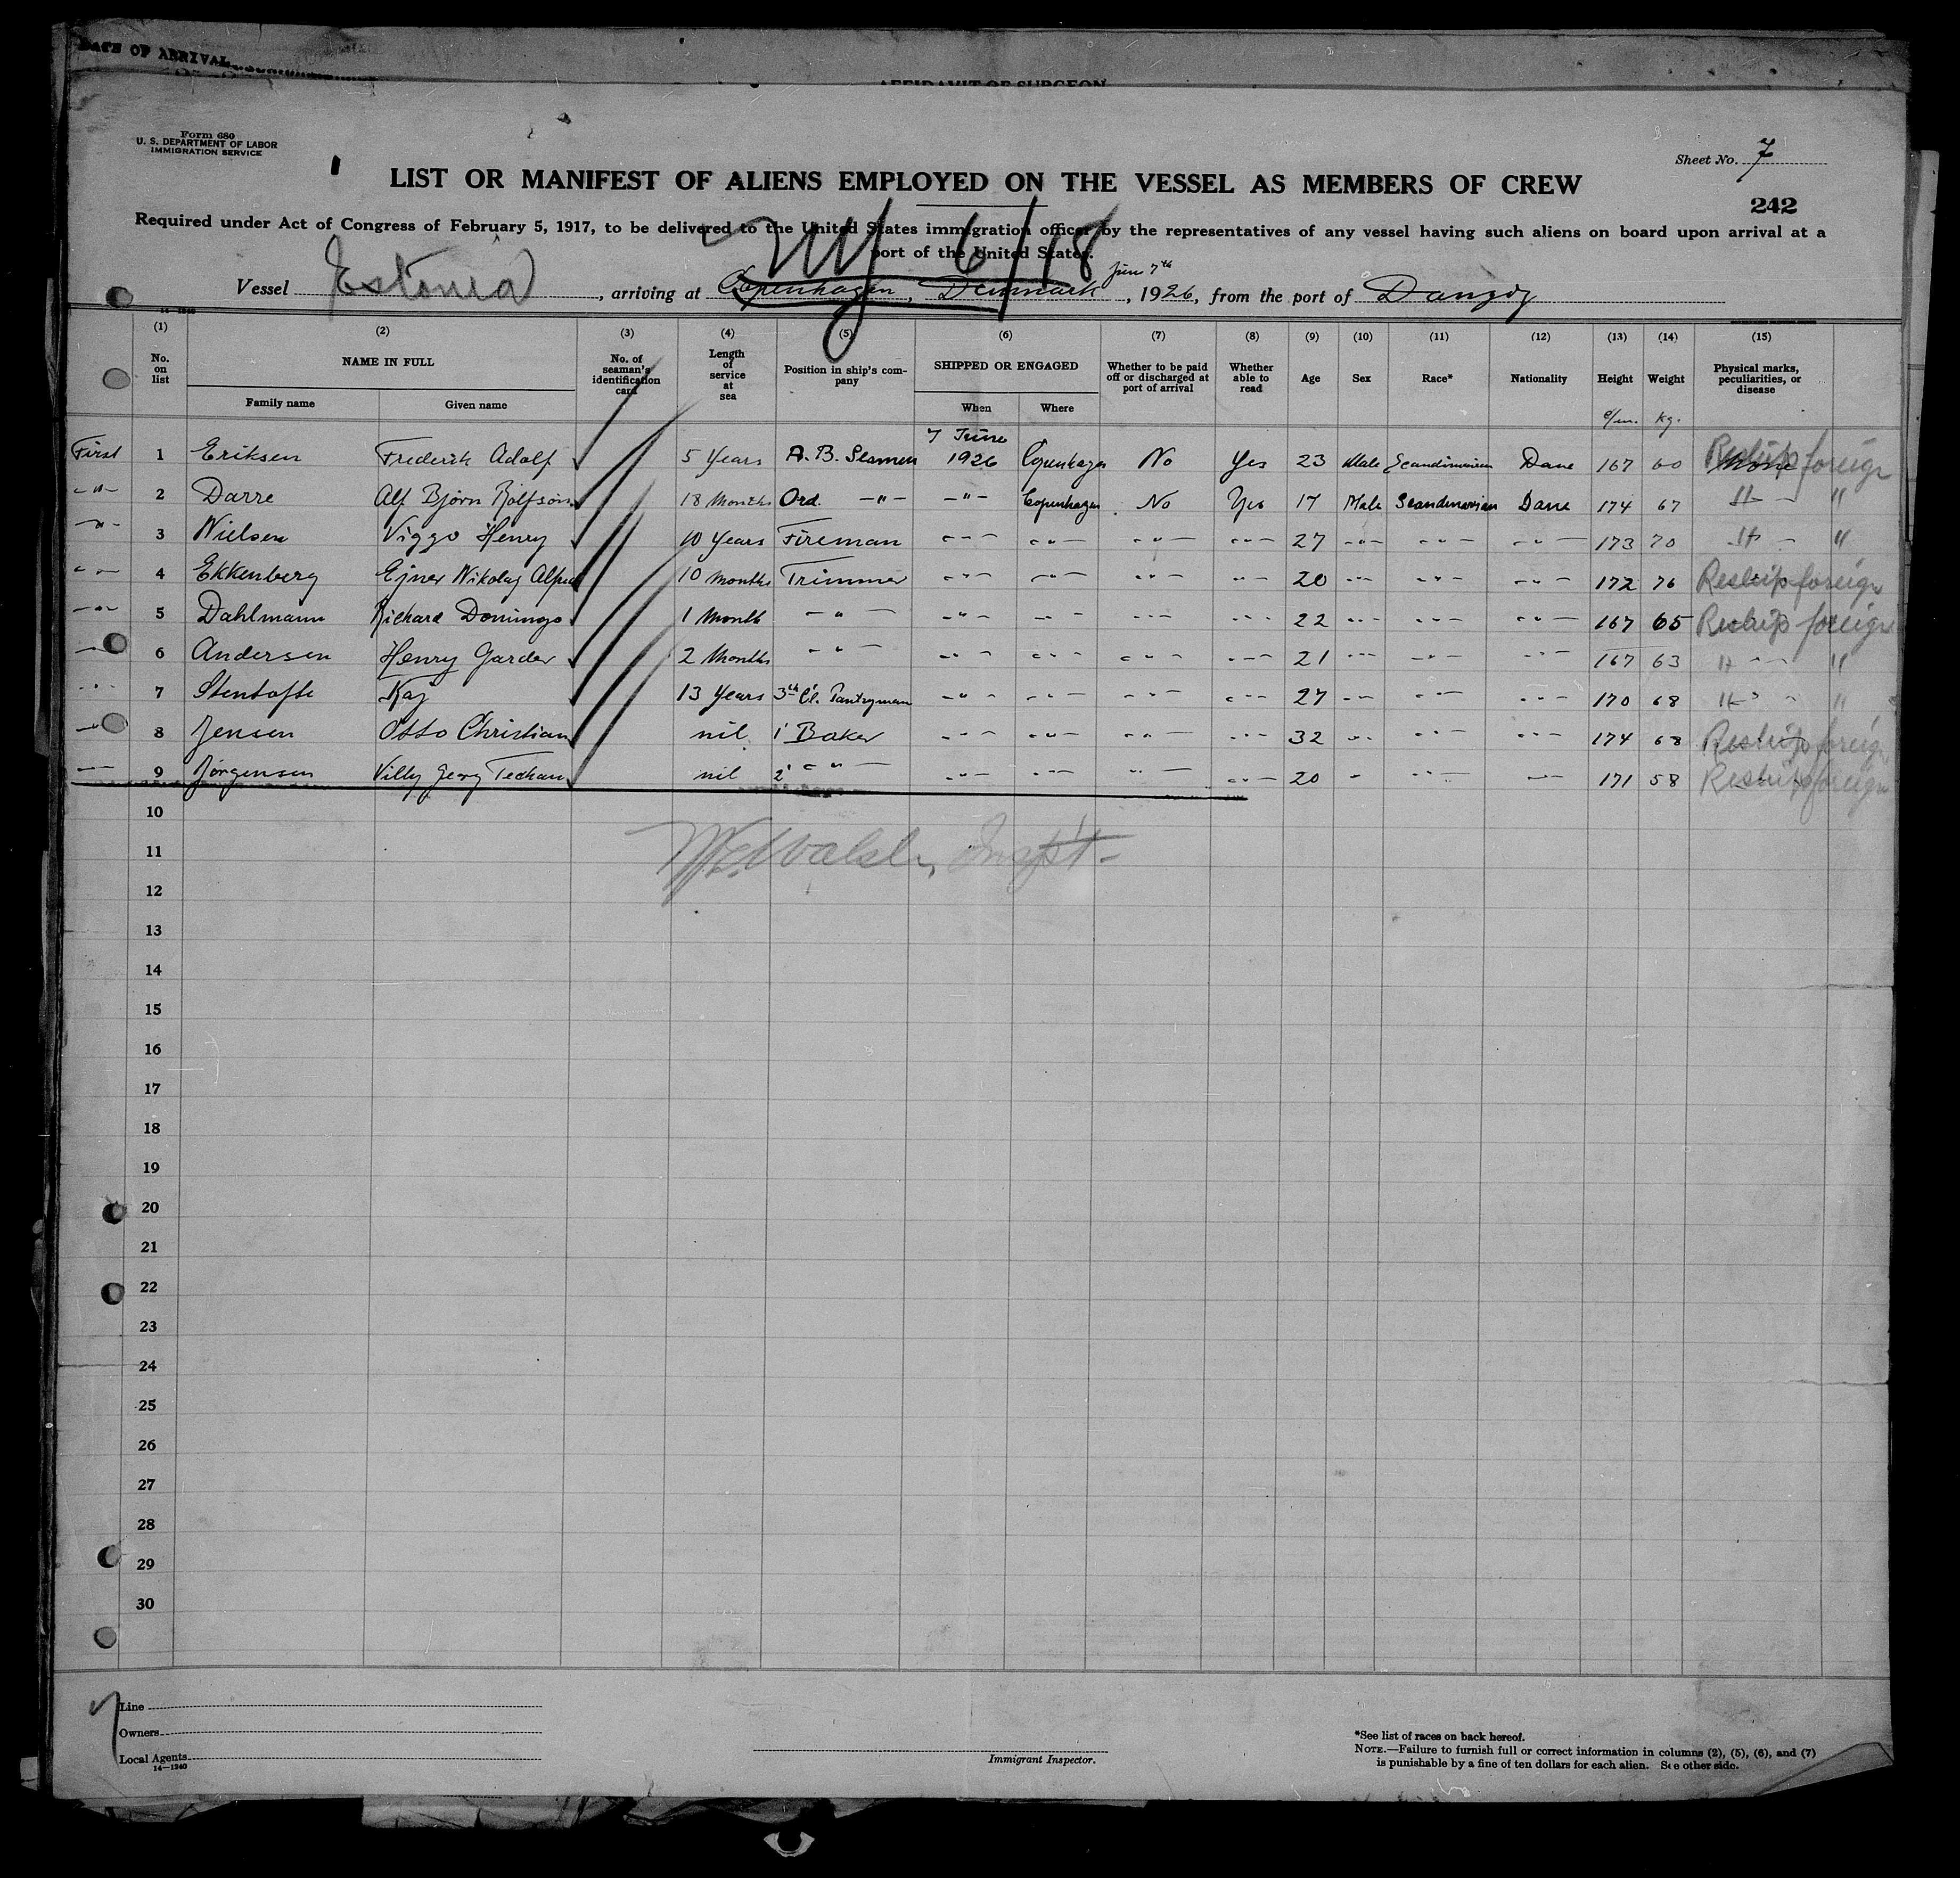 DATE OF ARRIVAL
AFFIDAVIT OF SURGEON
Form 680
U. S. DEPARTMENT OF LABOR
IMMIGRATION SERVICE
Sheet No. 7
LIST OR MANIFEST OF ALIENS EMPLOYED ON THE VESSEL AS MEMBERS OF CREW
242
Required under Act of Congress of February 5, 1917, to be delivered to the United States immigration officer by the representatives of any vessel having such aliens on board upon arrival at a
port of the United States.
NY 6/18
Vessel Estonia, arriving at Copenhagen, Denmark, June 7th, 1926, from the port of Danzig
(1) (2) (3) (4) (5) (6) (7) (8) (9) (10) (11) (12) (13) (14) (15)
No. on list NAME IN FULL No. of seaman's identification card Length of service at sea Position in ship's company SHIPPED OR ENGAGED Whether to be paid off or discharged at port of arrival Whether able to read Age Sex Race* Nationality Height Weight Physical marks, peculiarities, or disease
Family name Given name When Where c/m. kg.
First 1 Eriksen Frederik Adolf 5 Years A. B. Seamen 7 June 1926 Copenhagen No Yes 23 Male Scandinavian Dane 167 60 None Reship foreign
-"- 2 Darre Alf Bjørn Rolfson 18 Months Ord. -"- -"- Copenhagen No Yes 17 Male Scandinavian Dane 174 67 -"- "
-"- 3 Nielsen Viggo Henry 10 Years Fireman -"- -"- -"- -"- 27 -"- -"- -"- 173 70 -"- "
-"- 4 Ekkenberg Ejner Nikolaj Alfred 10 Months Trimmer -"- -"- -"- -"- 20 -"- -"- -"- 172 76 Reship foreign
-"- 5 Dahlmann Richard Domingo 1 Month -"- -"- -"- -"- -"- 22 -"- -"- -"- 167 65 Reship foreign
-"- 6 Andersen Henry Garder 2 Months -"- -"- -"- -"- -"- 21 -"- -"- -"- 167 63 -"- "
-"- 7 Stentofte Kaj 13 Years 3th Cl. Pantryman -"- -"- -"- -"- 27 -"- -"- -"- 170 68 -"- "
-"- 8 Jensen Otto Christian nil 1' Baker -"- -"- -"- -"- 32 -"- -"- -"- 174 68 Reship foreign
-"- 9 Jørgensen Villy Georg nil 2' -"- -"- -"- -"- -"- 20 -"- -"- -"- 171 58 Reship foreign
10
11 Walsh, Insp't.
12
13
14
15
16
17
18
19
20
21
22
23
24
25
26
27
28
29
30
Line
Owners
Local Agents
14—1240
Immigrant Inspector.
*See list of races on back hereof.
NOTE.—Failure to furnish full or correct information in columns (2), (5), (6), and (7)
is punishable by a fine of ten dollars for each alien. See other side.